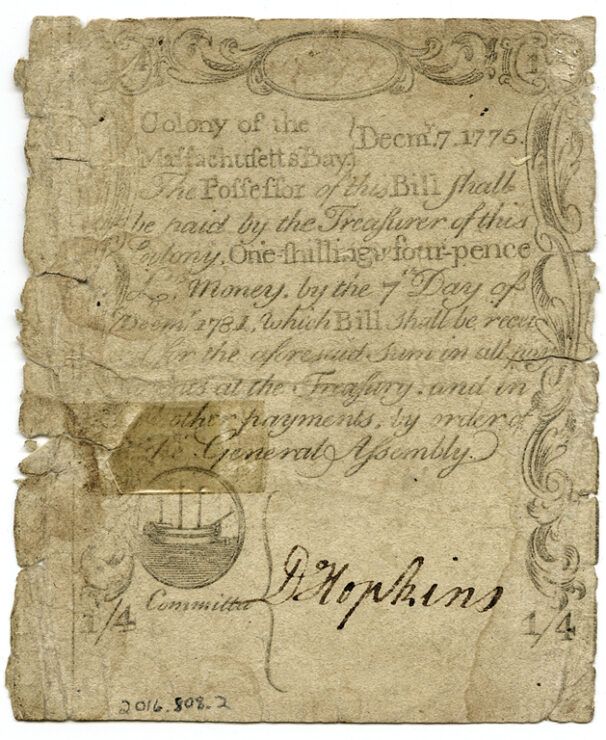 Colony of the
Massachusetts Bay } Decmr. 7. 1775.
The Possessor of this Bill shall
be paid by the Treasurer of this
Colony, One-shilling & four-pence
L. Money, by the 7th Day of
Decmr 1781, which Bill shall be recd
for the aforesaid sum in all pay
ments at the Treasury, and in
other payments, by order of
the General Assembly.
Committee D Hopkins
1/4 1/4
2016.808.2